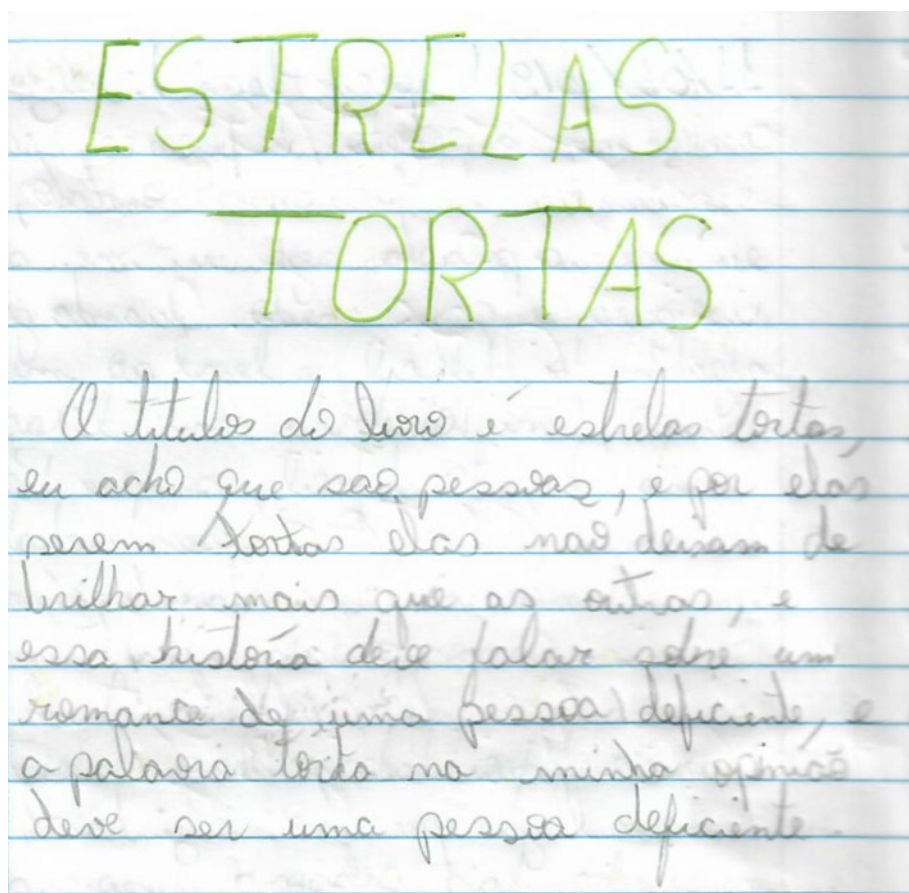 ESTRELAS
TORTAS
O titulos do livro é estrelas tortas,
eu acho que são pessoas, e por elas
serem tortas elas não deixam de
brilhar mais que as outras, e
essa história deve falar sobre um
romance de uma pessoa deficiente, e
a palavra torta na minha opinião
deve ser uma pessoa deficiente.